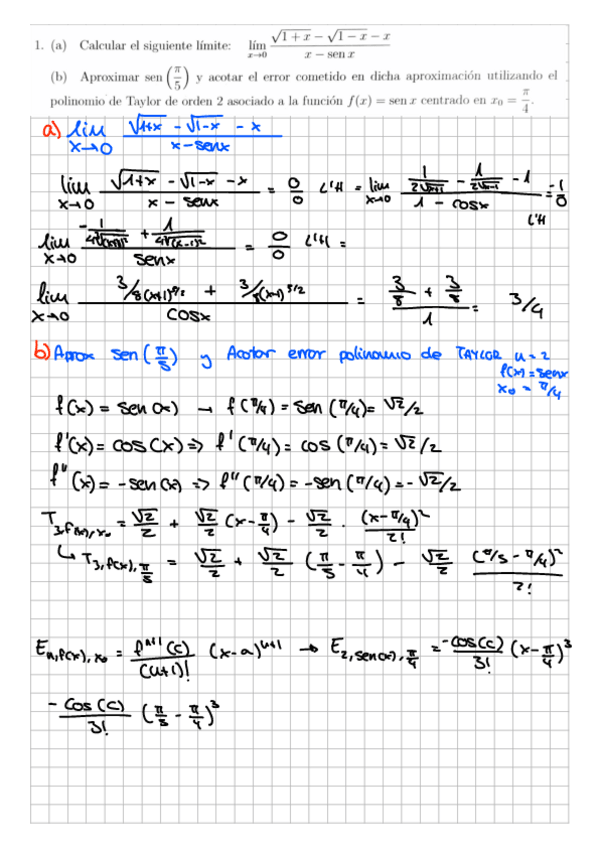 1. (a) Calcular el siguiente límite: lím x→0 (√1+x − √1−x − x)/(x − sen x)
(b) Aproximar sen(π/5) y acotar el error cometido en dicha aproximación utilizando el
polinomio de Taylor de orden 2 asociado a la función f(x) = sen x centrado en x₀ = π/4.
a) lim x→0 (√1+x − √1−x − x)/(x − senx)
lim x→0 (√1+x − √1−x − x)/(x − senx) = 0/0 L'H = lim x→0 (1/(2√x+1) − 1/(2√x−1) − 1)/(1 − cosx) = −1/0
L'H
lim x→0 / senx = 0/0 L'H =
lim x→0 (3/8(x+1)^5/2 + 3/8(x−1)^5/2)/cosx = (3/8 + 3/8)/1 = 3/4
b) Aprox sen(π/5) y Acotar error polinomio de TAYLOR n=2
f(x) = senx
x₀ = π/4
f(x) = sen(x) → f(π/4) = sen(π/4) = √2/2
f'(x) = cos(x) => f'(π/4) = cos(π/4) = √2/2
f''(x) = −sen(x) => f''(π/4) = −sen(π/4) = −√2/2
T₃,f(x),x₀ = √2/2 + √2/2 (x − π/4) − √2/2 · (x − π/4)²/2!
↳ T₃,f(x),π/5 = √2/2 + √2/2 (π/5 − π/4) − √2/2 (π/5 − π/4)²/2!
En,f(x),x₀ = fⁿ⁺¹(c)/(n+1)! (x−a)ⁿ⁺¹ → E₂,sen(x),π/4 = −cos(c)/3! (x − π/4)³
−cos(c)/3! (π/5 − π/4)³